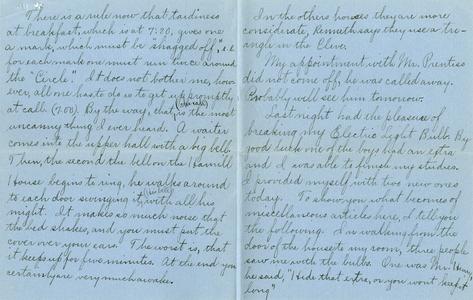 There is a rule now that tardiness
at breakfast, which is at 7:20, gives one
a mark, which must be "shagged off," i.e.
for each mark one must run twice around
the "Circle." I does not bother me, how-
ever, all one has to do is to get up promptly
at call (7.00). By the way, that is the most
uncanny thing I ever heard. A waiter
comes into the upper hall with a big bell.
Then, the second the bell on the Hamill
House begins to ring, he walks around
to each door swinging it, (the bell) with all his
might. It makes so much noise that
the bed shakes, and you must put the
cover over your ears. The worst is, that
it keeps up for five minutes. At the end you
certainly are very much awake.
In the other houses they are more
considerate, Kenneth says they use a tri-
angle in the Cleve.
My appointment with Mr. Prentiss
did not come off, he was called away.
Probably will see him tomorrow.
Last night had the pleasure of
breaking my Electric Light Bulb. By
good luck one of the boys had an extra
and I was able to finish my studies.
I provided myself with two new ones
today. To show you what becomes of
miscellaneous articles here, I tell you
the following. In walking from the
door of the house to my room, three people
saw me with the bulbs. One was Mr.
he said, "Hide that extra, or you won't keep it
long"